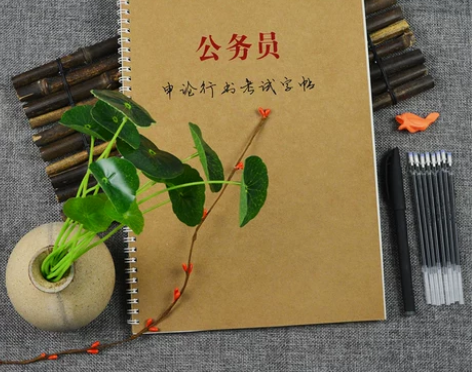 公务员
申论行书考试字帖